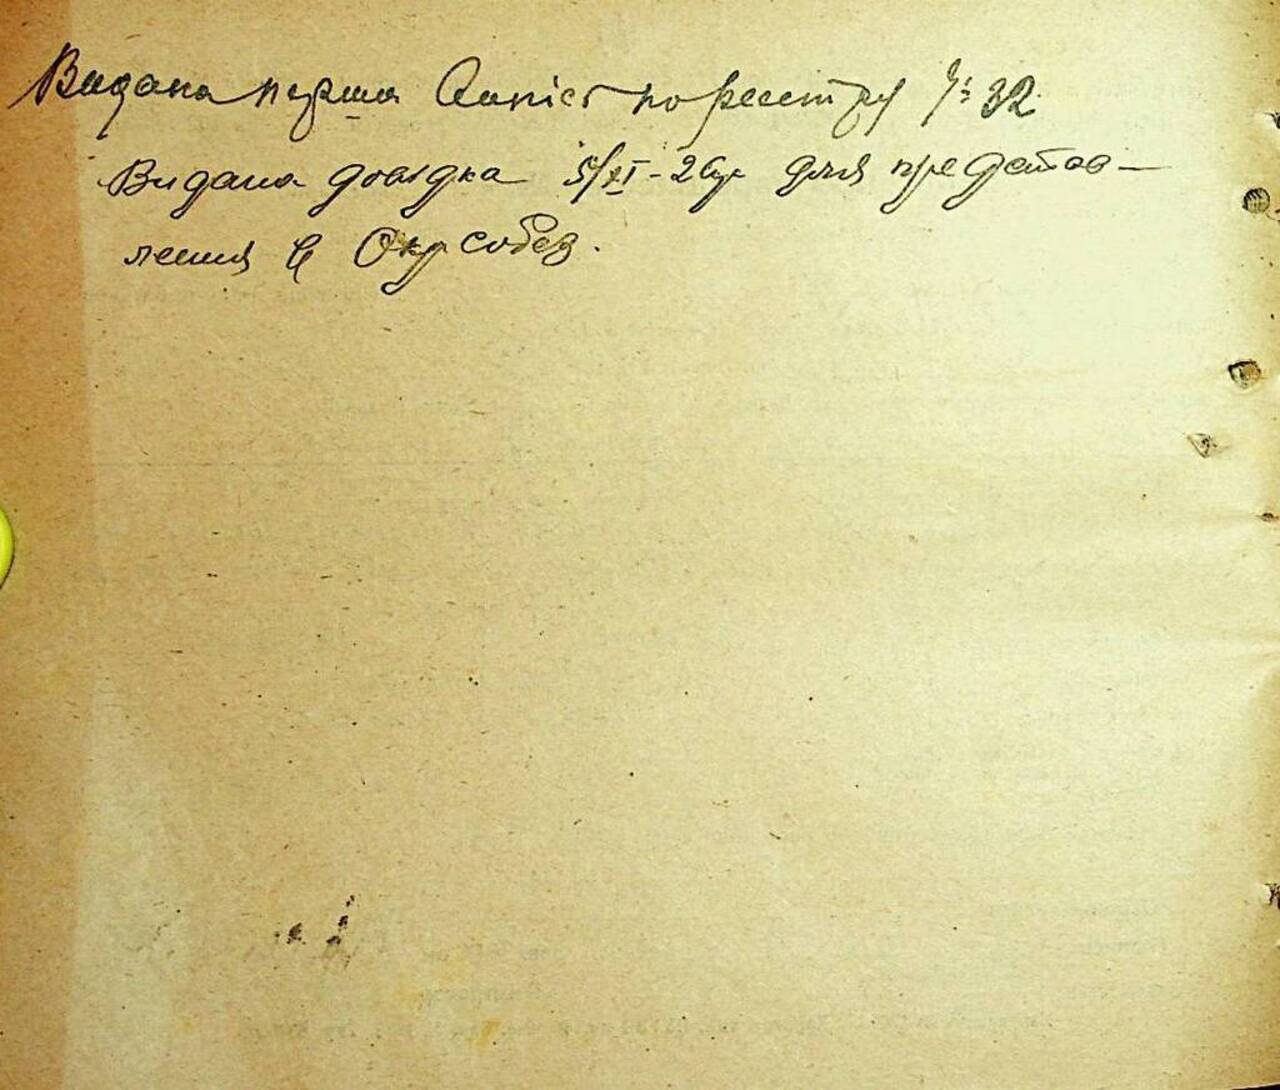 Видана перша по реєстру № 32
Видана довідка 5/XI-26р для представ-
ления в Окрсобез.